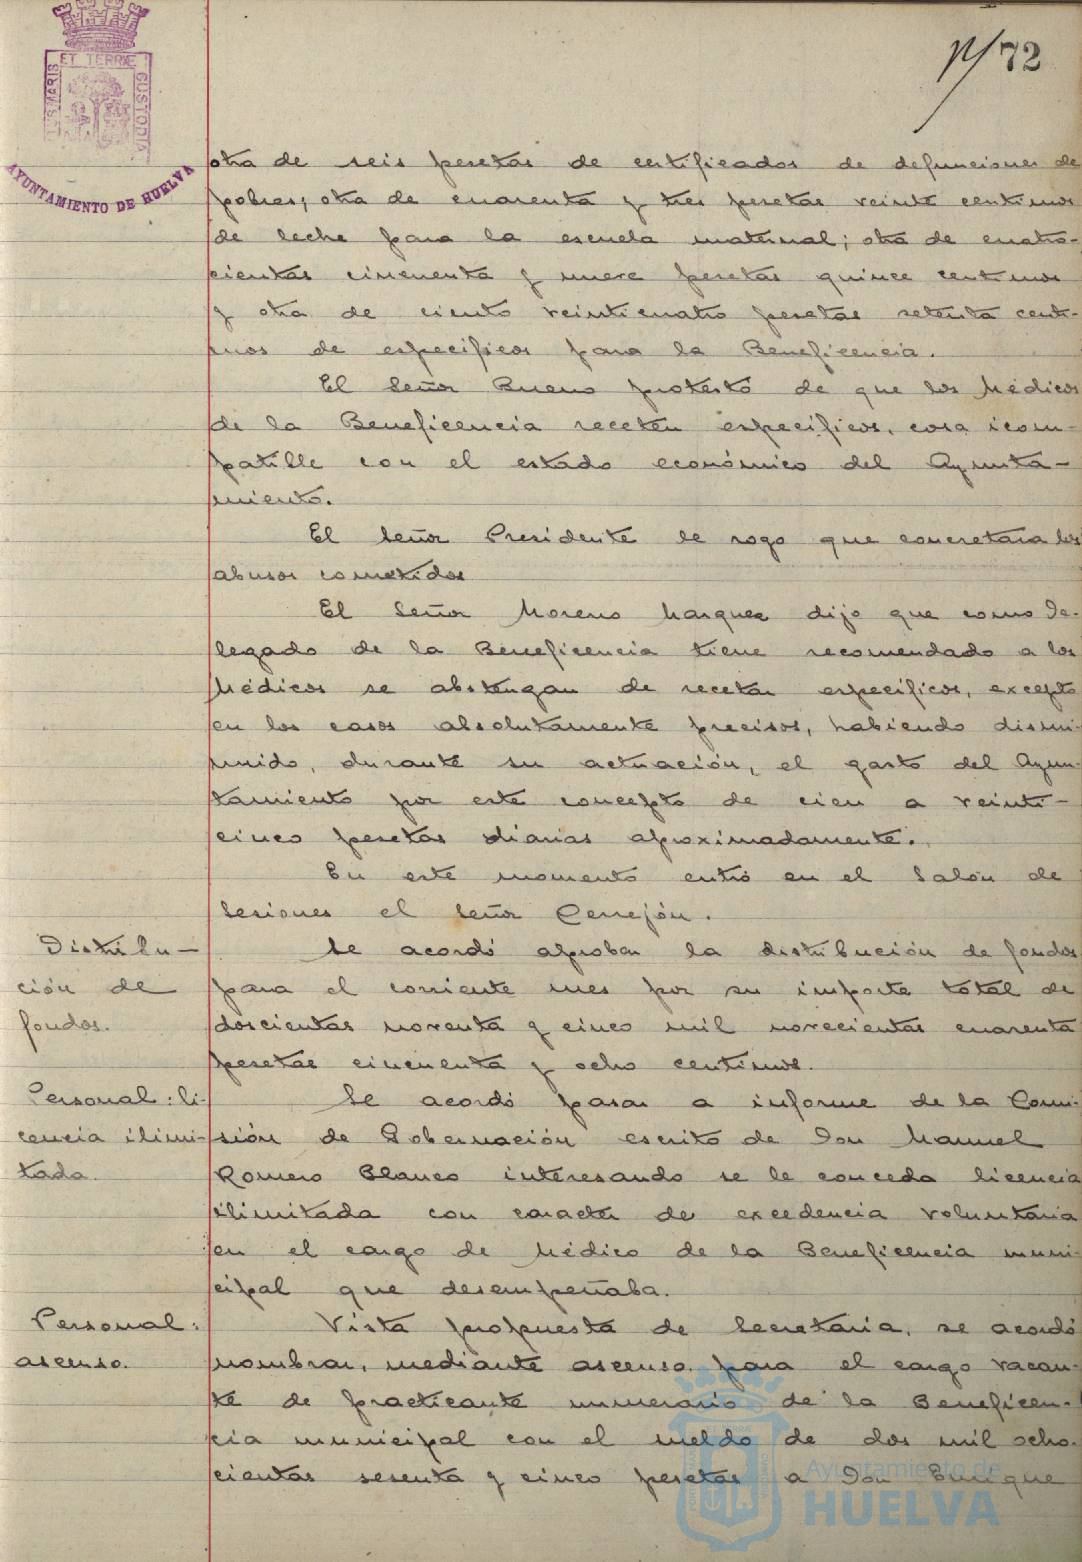 72
ET TERRÆ
CUSTODIA
AYUNTAMIENTO DE HUELVA
otra de seis pesetas de certificados de defunciones de
pobres; otra de cuarenta y tres pesetas veinte centimos
de leche para la escuela maternal; otra de cuatro-
cientas cincuenta y nueve pesetas quince centimos
y otra de ciento veinticuatro pesetas setenta centi-
mos de especificos para la Beneficencia.
El Señor Bueno protestó de que los Médicos
de la Beneficencia receten especificos, cosa icom-
patible con el estado económico del Ayunta-
miento.
El Señor Presidente le rogo que concretara los
abusos cometidos
El Señor Moreno Marquez dijo que como De-
legado de la Beneficencia tiene recomendado a los
Médicos se abstengan de recetar especificos, excepto
en los casos absolutamente precisos, habiendo dismi-
nuido, durante su actuación, el gasto del Ayun-
tamiento por este concepto de cien a veinti-
cinco pesetas diarias aproximadamente.
En este momento entró en el Salón de
Sesiones el Señor Cerrejón.
Distribu-
ción de
fondos.
Se acordó aprobar la distribución de fondos
para el corriente mes por su importe total de
doscientas noventa y cinco mil novecientas cuarenta
pesetas cincuenta y ocho centimos.
Personal: li-
cencia ilimi-
tada.
Se acordó pasar a informe de la Comi-
sión de Gobernación escrito de Don Manuel
Romero Blanco interesando se le conceda licencia
ilimitada con caracter de excedencia voluntaria
en el cargo de Médico de la Beneficencia muni-
cipal que desempeñaba.
Personal:
ascenso.
Vista propuesta de Secretaria, se acordó
nombrar, mediante ascenso para el cargo vacan-
te de practicante numerario de la Beneficen-
cia municipal con el sueldo de dos mil ocho-
cientas sesenta y cinco pesetas a Don Enrique
Ayuntamiento de
HUELVA